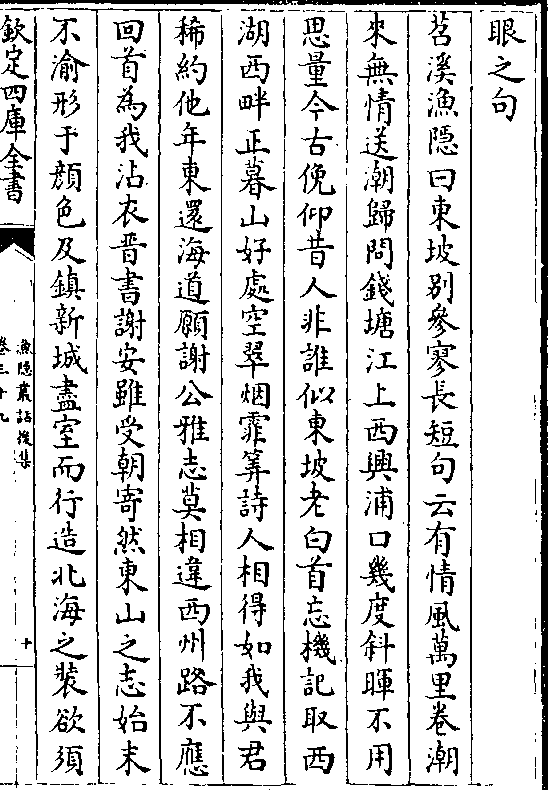 眼之句
苕溪漁隱曰東坡别參寥長短句云有情風萬里卷潮
來無情送潮歸問錢塘江上西興浦口幾度斜暉不用
思量今古俛仰昔人非誰似東坡老白首忘機記取西
湖西畔正暮山好處空翠烟霏筭詩人相得如我與君
稀約他年東還海道願謝公雅志莫相違西州路不應
回首為我沾衣晉書謝安雖受朝寄然東山之志始末
不渝形于顔色及鎮新城盡室而行造北海之裝欲須
欽定四庫全書
漁隱叢話後集
卷三十九
十